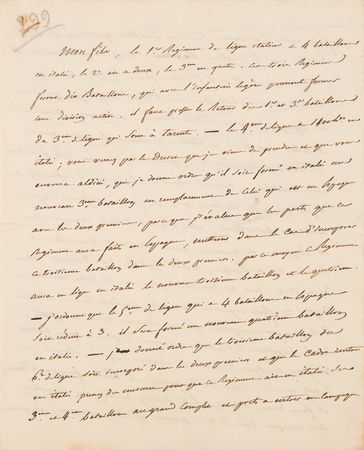 299
Mon fils, le 1er Régiment de ligne italien a 4 bataillons
en italie, le 2e en a deux, le 3me en quatre. Ces trois Régiments
forme dix Bataillons, qui avec l'infanterie légère peuvent former
une division active. il faut presser le Retour des 1er et 3e bataillons
du 3me de ligne qui sont à tarente. — le 4me de ligne a 1400 h. en
italie; vous verrez par le décret que je viens de prendre et que vous
enverra aldini, que j'ai donné ordre qu'il soit formé en italie un
nouveau 3me bataillon en remplacement de celui qui est en Espagne
avec les deux premiers, parce que j'évalue que les pertes que ce
Régiment aura faites en Espagne, mettrons dans le cas d'incorporer
ce troisième bataillon dans les deux premiers. par ce moyen ce Régiment
aura en ligne en italie le nouveau troisième bataillon et le quatrième
— j'ordonne que le 5me de ligne qui a 4 bataillons en Espagne
soit réduit à 3. il sera formé un nouveau quatrième bataillon
en italie. — j'ai donné ordre que le troisième bataillon du
6e de ligne soit incorporé dans les deux premiers et que le cadre rentre
en italie. prenez des mesures pour que ce Régiment ait en italie ses
3me et 4me bataillons au grand complet et prêts à entrer en campagne